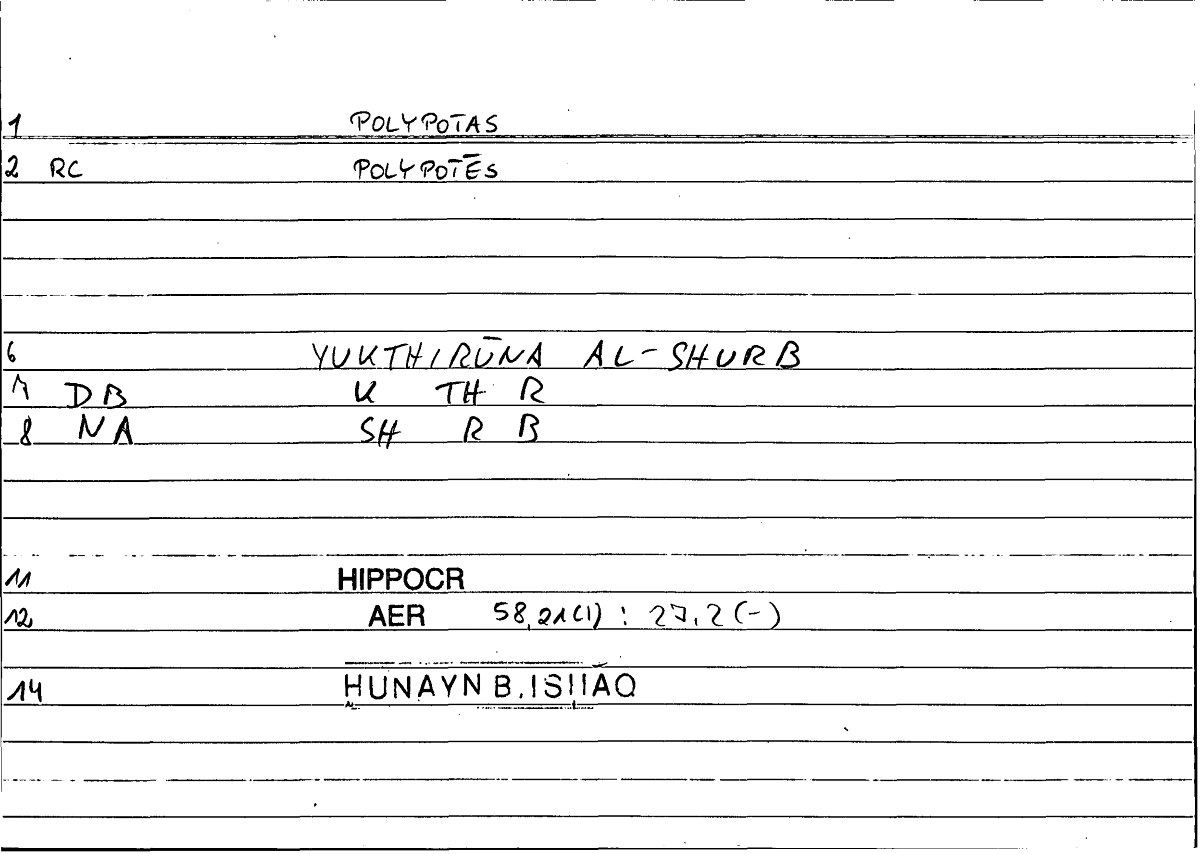 1 POLYPOTAS
2 RC POLYPOTĒS
6 YUKTHIRŪNA AL-SHURB
7 DB K TH R
8 NA SH R B
11 HIPPOCR
12 AER 58,21(1) : 27,2(-)
14 ḤUNAYN B. ISḤĀQ